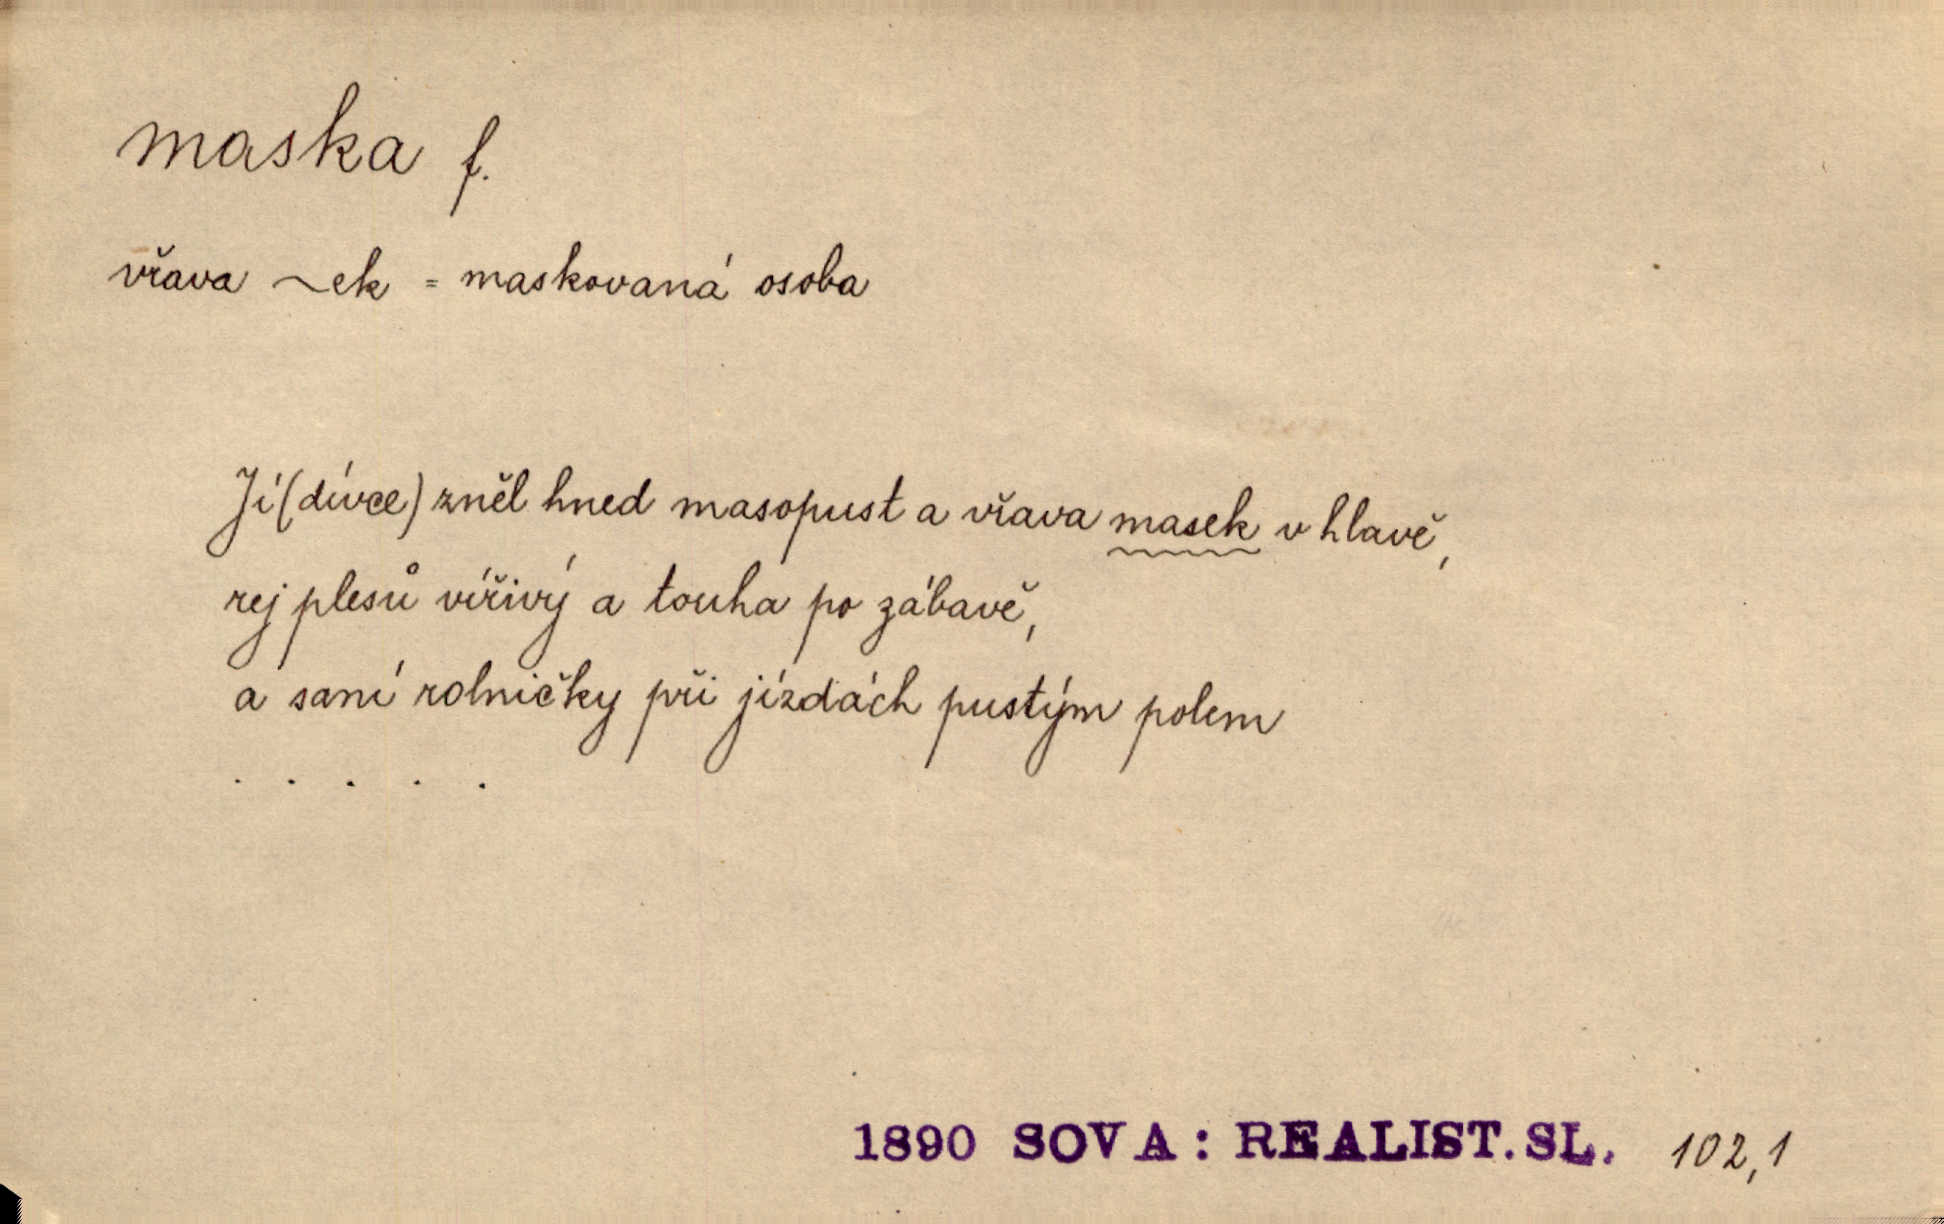 maska f.
vřava ~ek = maskovaná osoba
Jí (dívce) zněl hned masopust a vřava masek v hlavě,
rej plesů vířivý a touha po zábavě,
a saní rolničky při jízdách pustým polem
. . . . .
1890 SOVA: REALIST. SL. 102,1